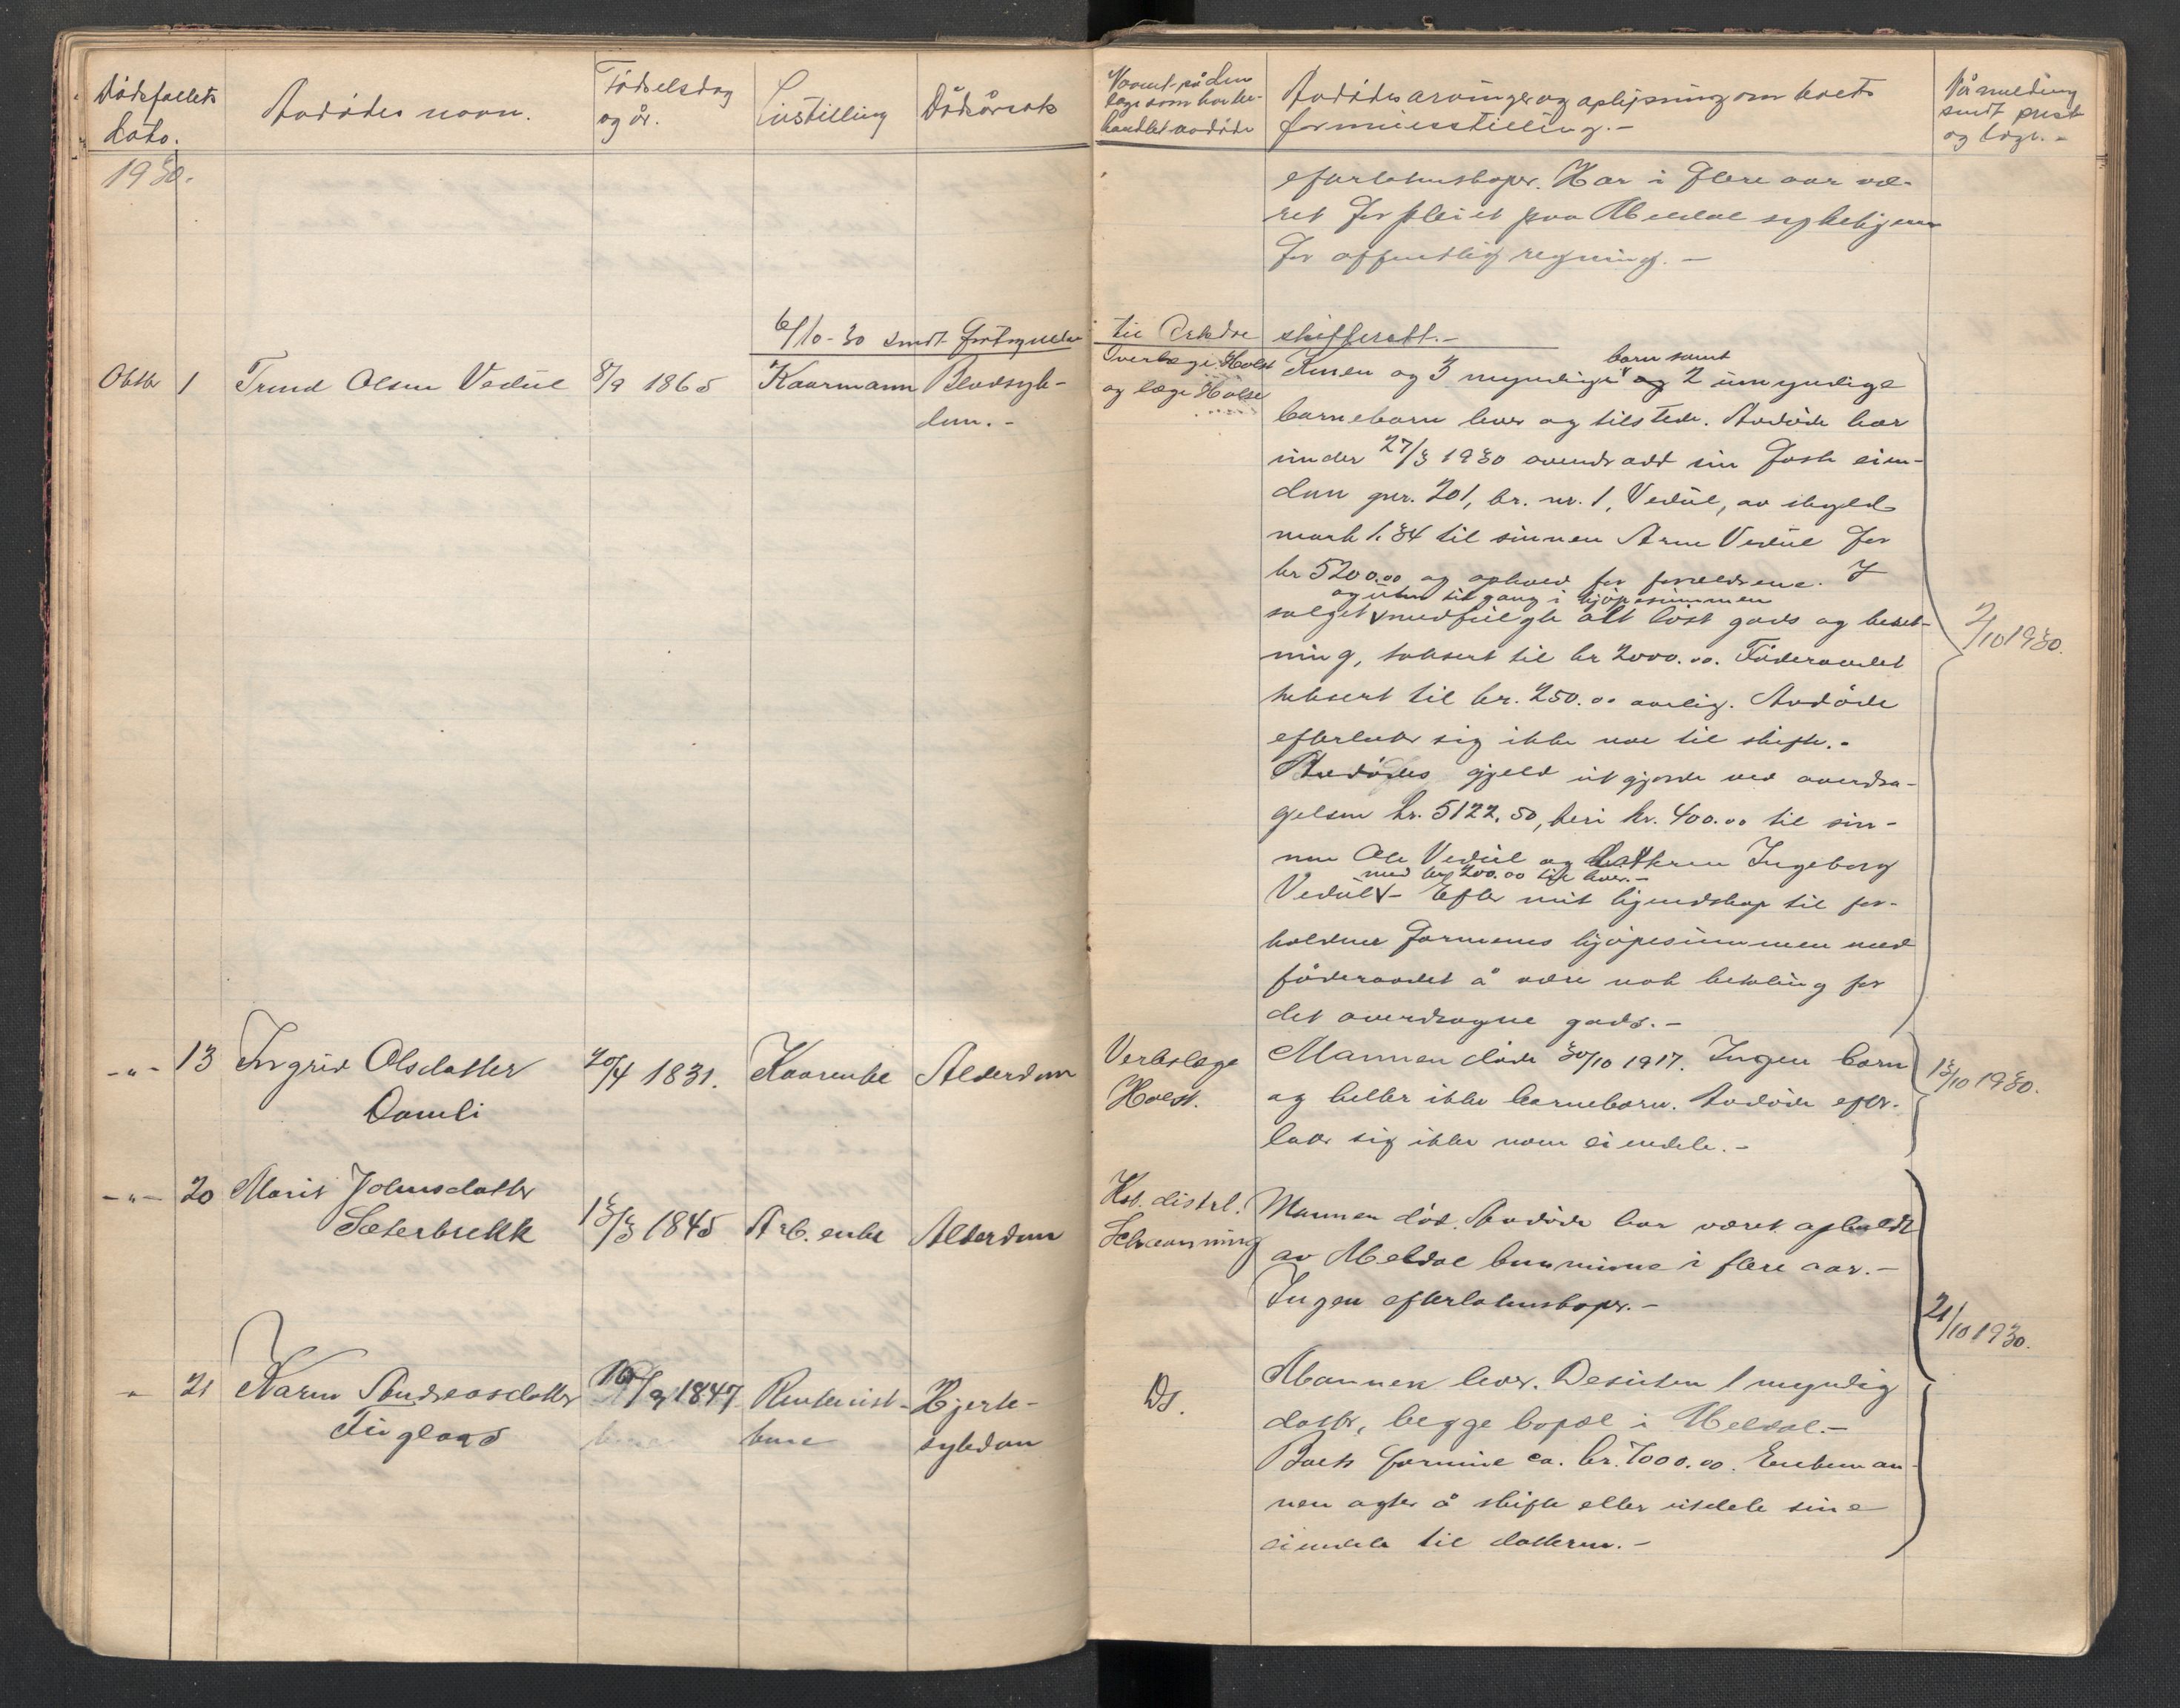 Dødsfallets dato.
Avdødes navn.
Fødselsdag og år.
Livstilling
Dødsårsak
Navnet på den læge som har behandlet avdøde
Avdødes arvinger og oplysning om boets formuesstilling.-
Når melding sendt prest og læge.-
1930.
efterlatenskaper. Har i flere aar væ-
ret forpleiet paa Meldal sykehjem
for offentlig regning.-
6/10-30 sendt fortegnelse til Orkdal skifterett.-
Oktbr 1 Trond Olsen Vedul 8/9 1865 Kaarmann Blodsyk-
dom.-
Overlæge Holst
og læge Holst
Konen og 3 myndige barn samt og 2 umyndige
barnebarn lever og tilstede. Avdøde har
under 27/3 1930 overdradd sin faste eien-
dom gnr. 201, br. nr. 1, Vedul, av skyld
mark 1.34 til sønnen Arne Vedul for
kr 5200.00 og ophold for forældrene. I
salget og uten tilgang i kjøpesummen medfulgte alt løst gods og beset-
ning, taksert til kr 2000.00. Føderaadet
taksert til kr. 250.00 aarlig. Avdøde
efterlater sig ikke noe til skifte.-
Avdødes gjeld utgjorde ved overdra-
gelsen kr. 5122,50, heri kr. 400.00 til søn-
nen Ole Vedul og datteren Ingeborg
Vedul med kr 200.00 til hver.- - Efter mit kjendskap til for-
holdene formenes kjøpesummen med
føderaadet å være nok betaling for
det overdragne gods.-
2/10 1930.
-"- 13 Ingrid Olsdatter
Damli
20/4 1831. Kaarenke Alderdom
Verkslæge
Holst.
Mannen døde 30/10 1917. Ingen barn
og heller ikke barnebarn. Avdøde efter-
later sig ikke noen eiendele.-
13/10 1930.
-"- 20 Marit Johnsdatter
Sæterbrekk
13/3 1845 Arb. enke Alderdom
Kst. distrl.
Schanning
Mannen død. Avdøde har været opholdt
av Meldal kommune i flere aar.-
Ingen efterlatenskaper.-
21/10 1930.
" 21 Karen Andreasdatter
Fugleaas
16/9 1847. Rentenist-
kone
Hjerte-
sykdom
Ds.
Mannen lever. Desuten 1 myndig
datter, begge bopæl i Meldal.-
Boets formue ca. kr. 7000.00. Enkeman-
nen agter å skifte eller utdele sine
eiendele til datteren.-